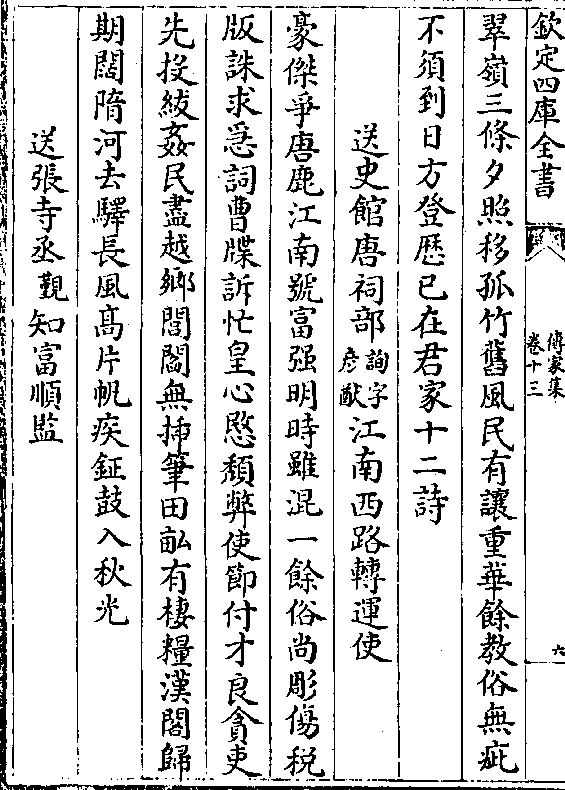 欽定四庫全書
傳家集
卷十三
六
翠嶺三條夕照移孤竹舊風民有讓重華餘教俗無疵
不須到日方登歷已在君家十二詩
送史館唐祠部詢字彥猷江南西路轉運使
豪傑爭唐鹿江南號富强明時雖混一餘俗尚彫傷税
版誅求急詞曹牒訴忙皇心愍頽弊使節付才良貪吏
先投紱姦民盡越鄉閭閻無揷筆田畝有棲糧漢閣歸
期闊隋河去驛長風髙片帆疾鉦鼓入秋光
送張寺丞覲知富順監